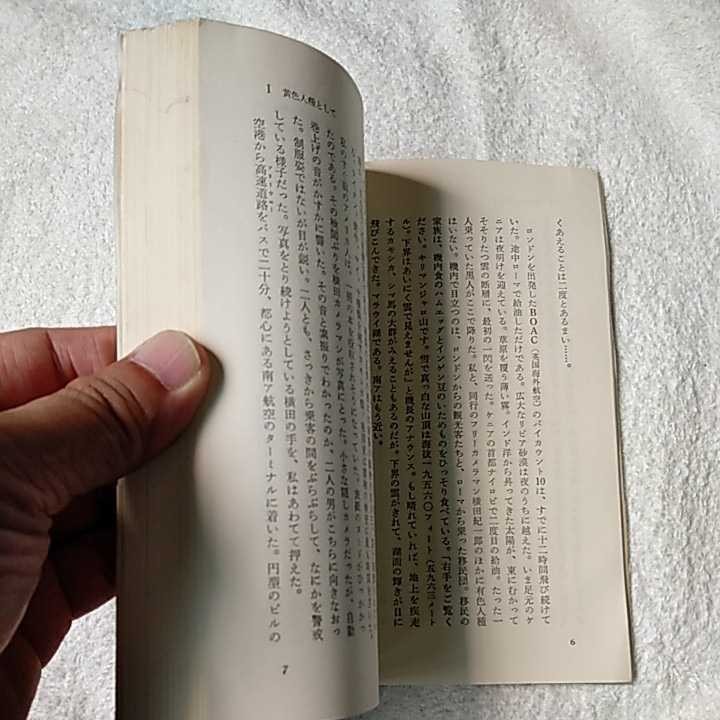 くあえることは二度とあるまい……。
ロンドンを出発したBOAC(英国海外航空)のバイカウント10は、すでに十二時間飛び続けて
いた。途中ローマで給油しただけである。広大なリビア砂漠は夜のうちに越えた。いま足元のケ
ニアは夜明けを迎えている。草原を覆う薄い霧。インド洋から昇ってきた太陽が、東にむかって
そそりたつ雲の断層に、最初の一閃を送った。ケニアの首都ナイロビで二度目の給油。たった一
人乗っていた黒人がここで降りた。私と、同行のフリーカメラマン横田紀一郎のほかに有色人種
はいない。機内で目立つのは、ロンドンからの観光客たちと、ローマから乗った移民団。移民の
家族は、機内食のハムエッグとインゲン豆のいためものをひっそり食べている。「右手をご覧く
ださい。キリマンジャロ山です。雪で真っ白な山頂は海抜一九五六〇フィート(五九六三メート
ル)。下界はあいにく雲で見えませんが」と機長のアナウンス。もし晴れていれば、地上を疾走
するカモシカ、シマ馬の大群がみえることもあるのだが。下界の雲がきれて、湖面の輝きが目に
飛びこんできた。マラウイ湖である。南アはもう近い。
6
I 黄色人種として
たのである。その瞬間ぶりを横田カメラマンが写真にとった。小さな隠しカメラだったが、自動
巻上げの音がかすかに響いた。その音と素振りでわかったのか、二人の男がこちらに向きなおっ
た。制服姿ではないが目が鋭い。二人とも、さっきから乗客の間をぶらぶらして、なにかを警戒
している様子だった。写真をとり続けようとしている横田の手を、私はあわてて押えた。
空港から高速道路をバスで二十分、都心にある南ア航空のターミナルに着いた。円型のビルの
7